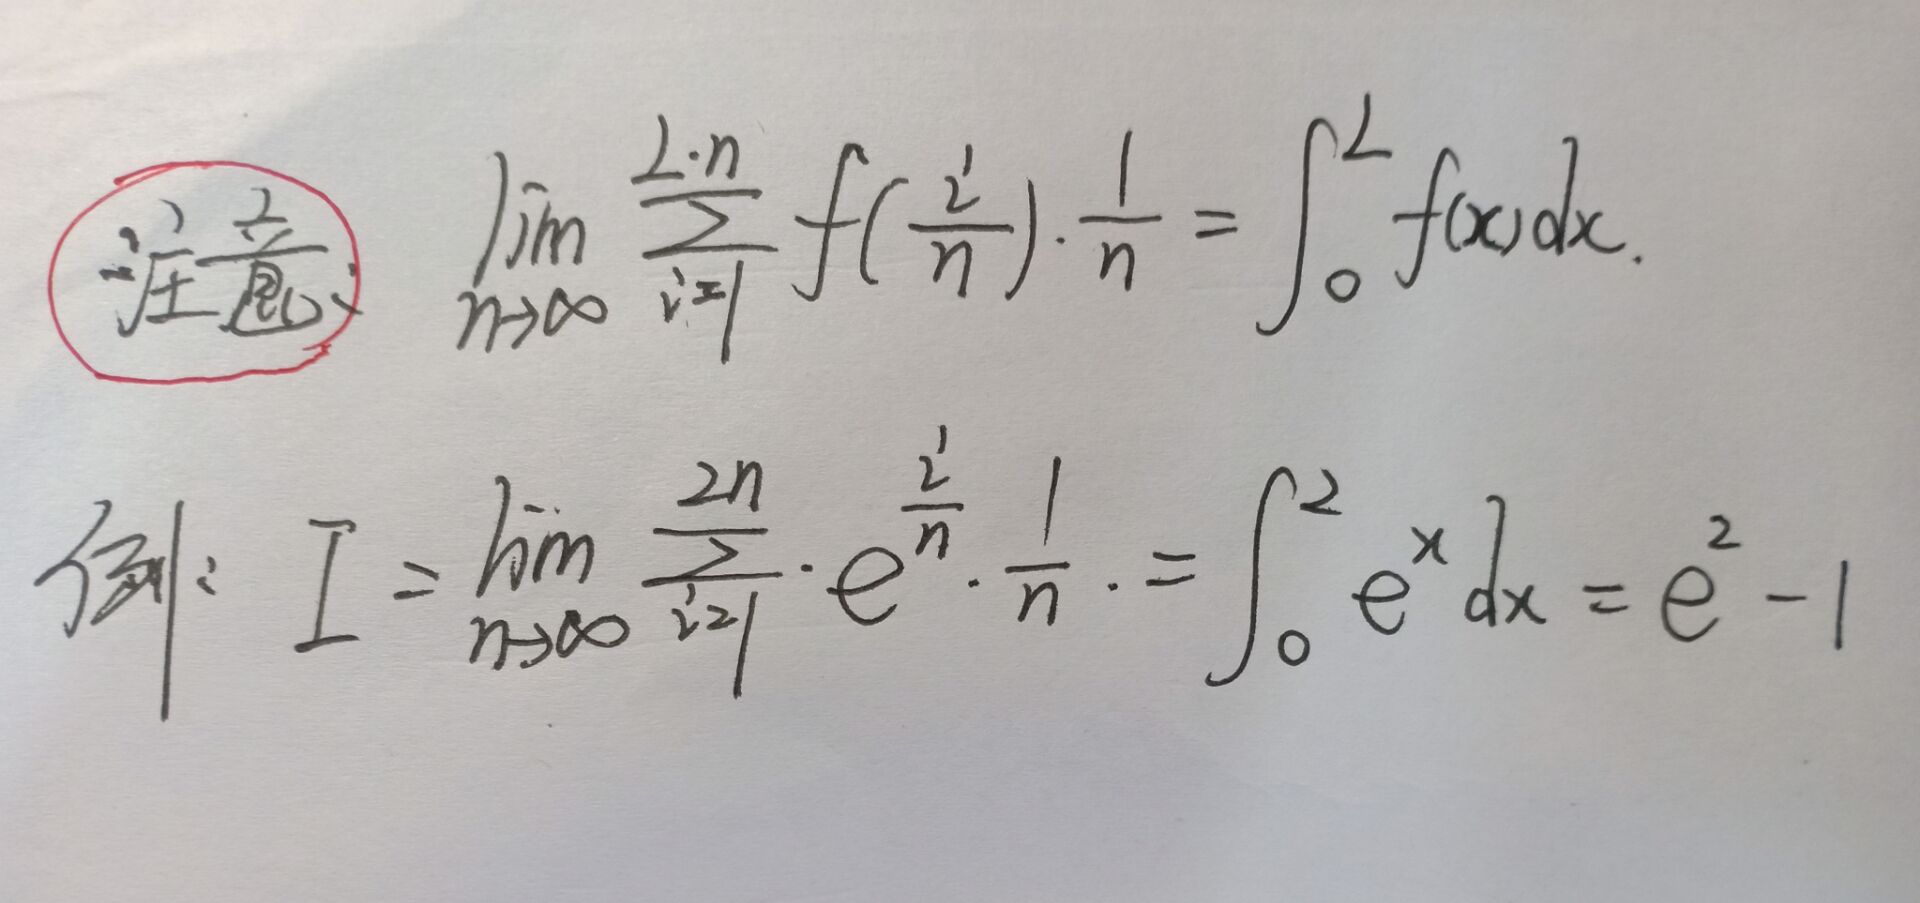 注意: lim_{n→∞} ∑_{i=1}^{L·n} f(i/n)·1/n = ∫_0^L f(x)dx.
例: I = lim_{n→∞} ∑_{i=1}^{2n} · e^{i/n} · 1/n . = ∫_0^2 e^x dx = e^2 - 1